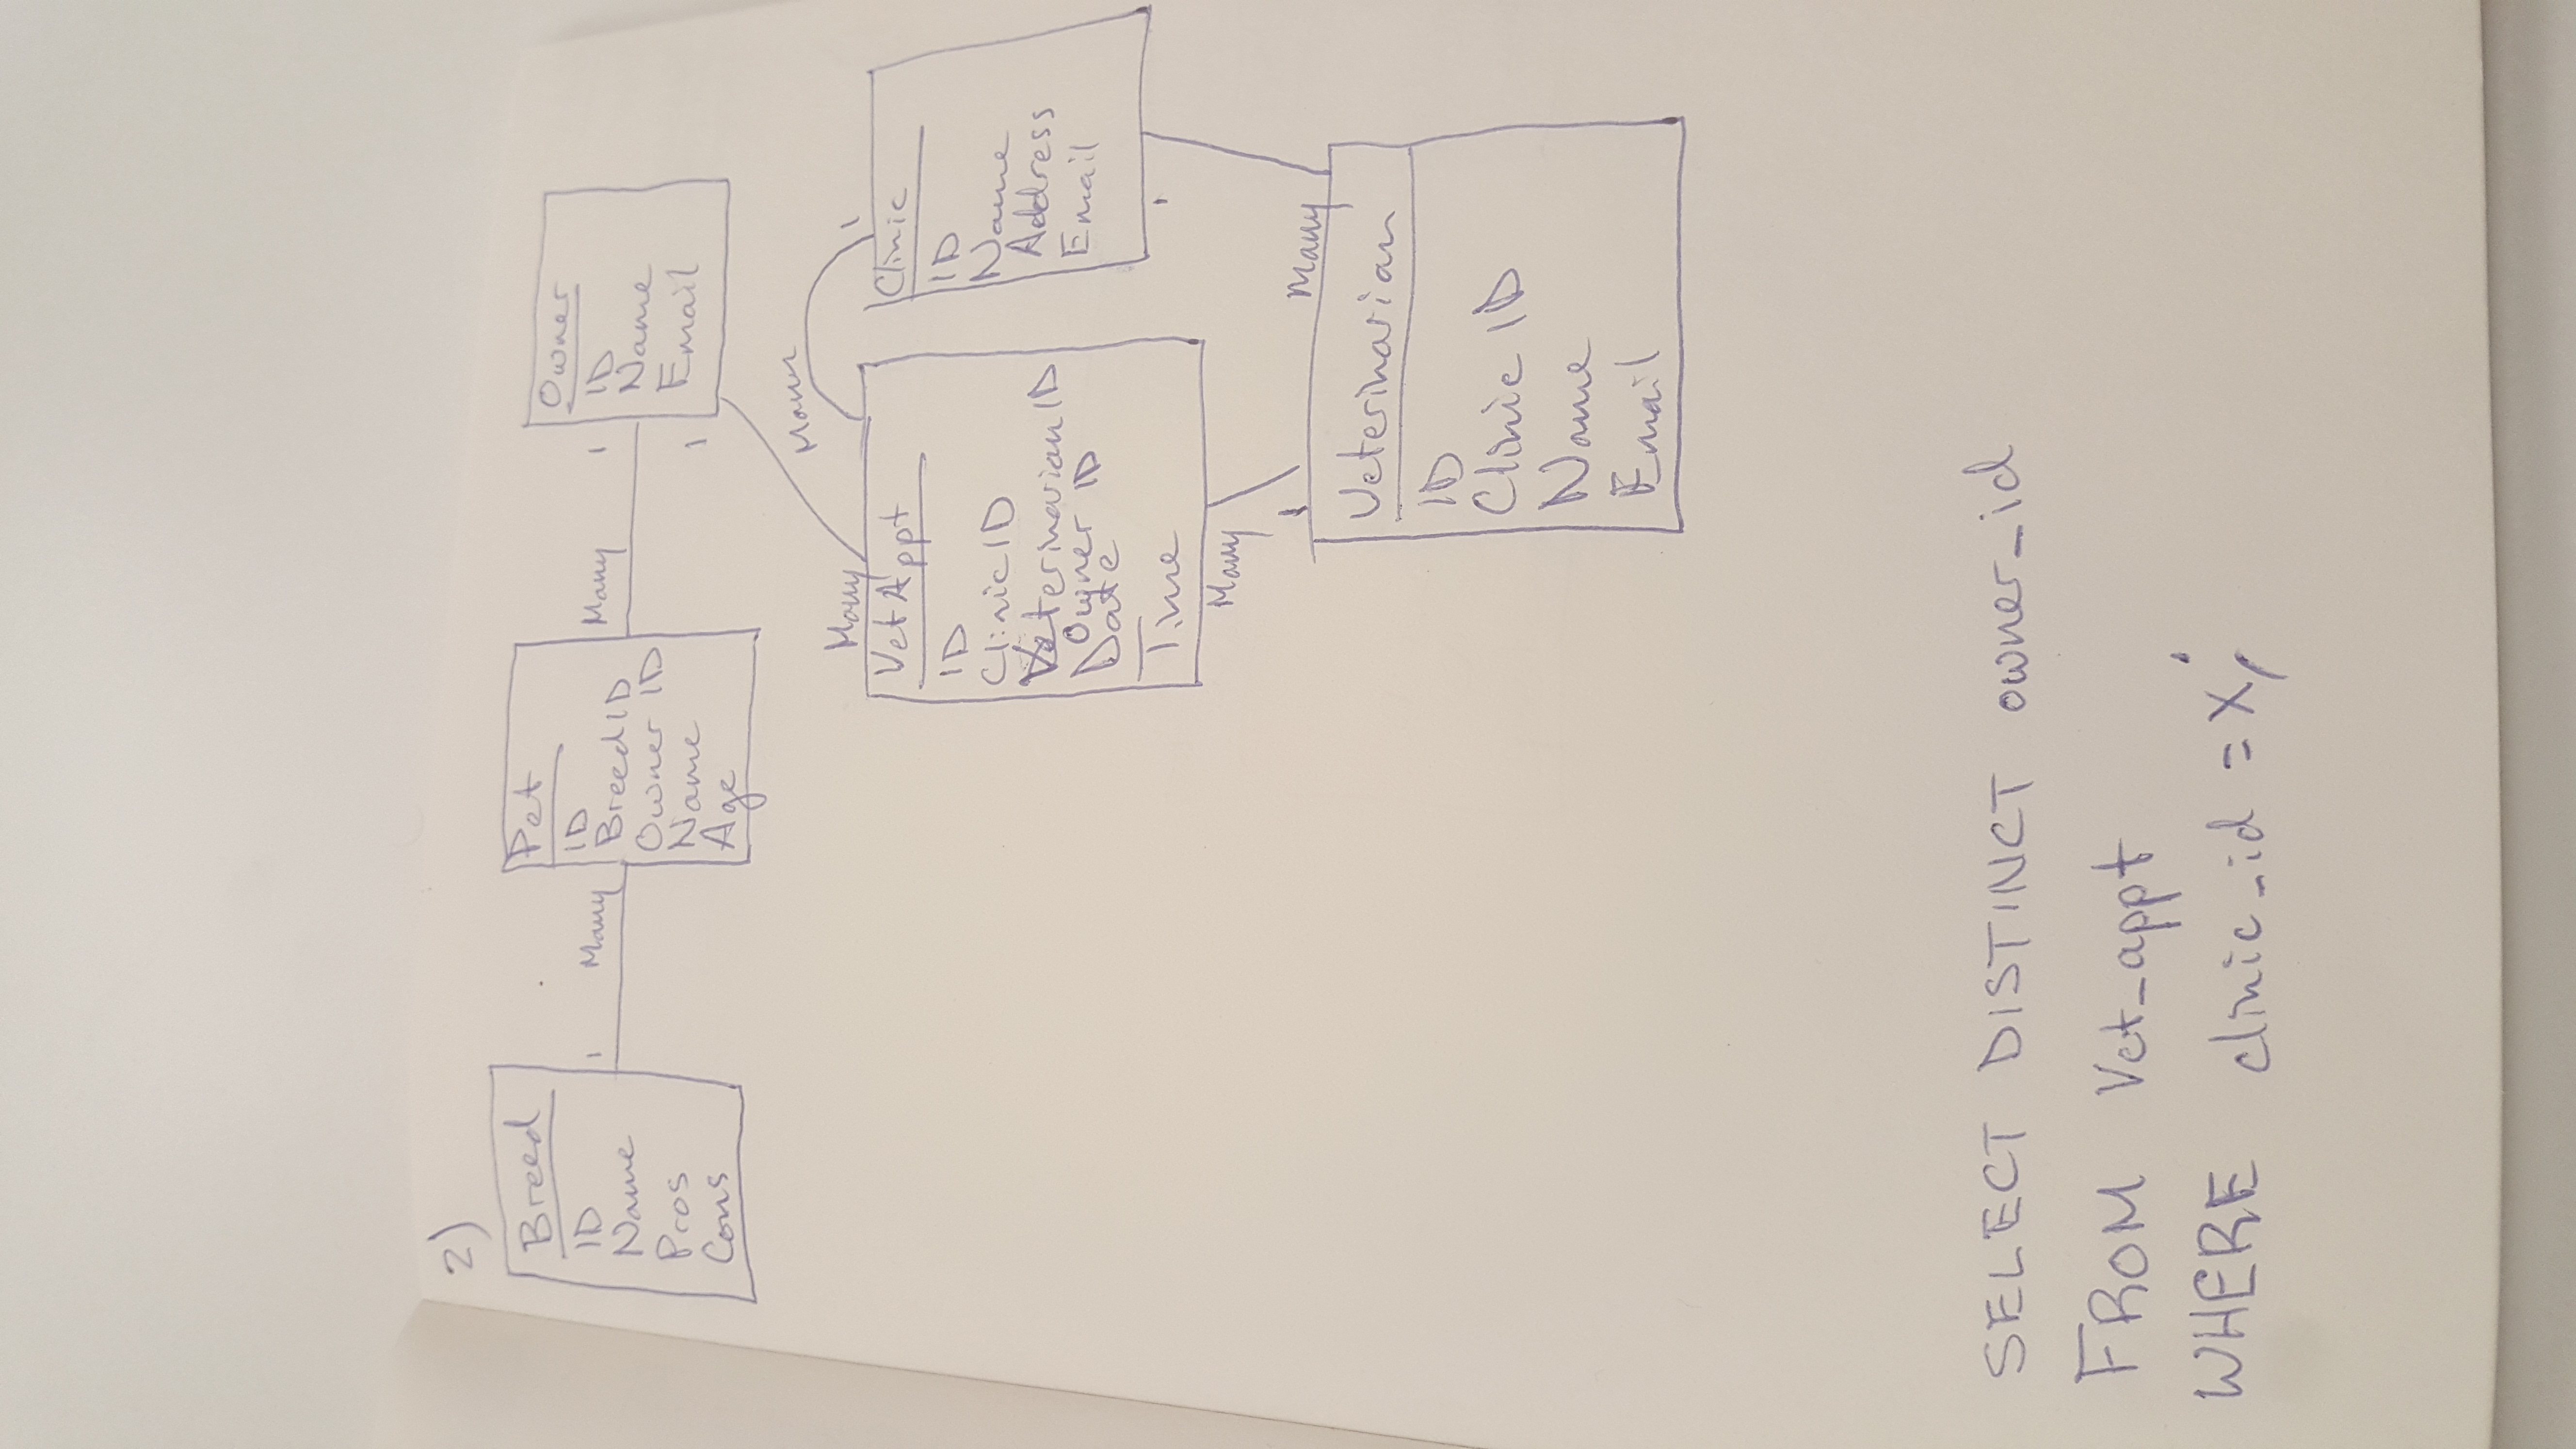 2)
Breed
ID
Name
Pros
Cons
1 Many
Pet
ID
BreedID
Owner ID
Name
Age
Many 1
Owner
ID
Name
Email
1
Many
Many 1
VetAppt
ID
ClinicID
VeterinarianID
Owner ID
Date
Time
Clinic
ID
Name
Address
Email
Many
1
1
Many
Veterinarian
ID
Clinic ID
Name
Email
SELECT DISTINCT owner_id
FROM Vet_appt
WHERE clinic_id = X;